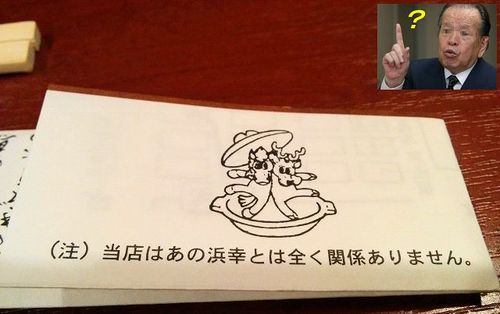 ?
（注）当店はあの浜幸とは全く関係ありません。